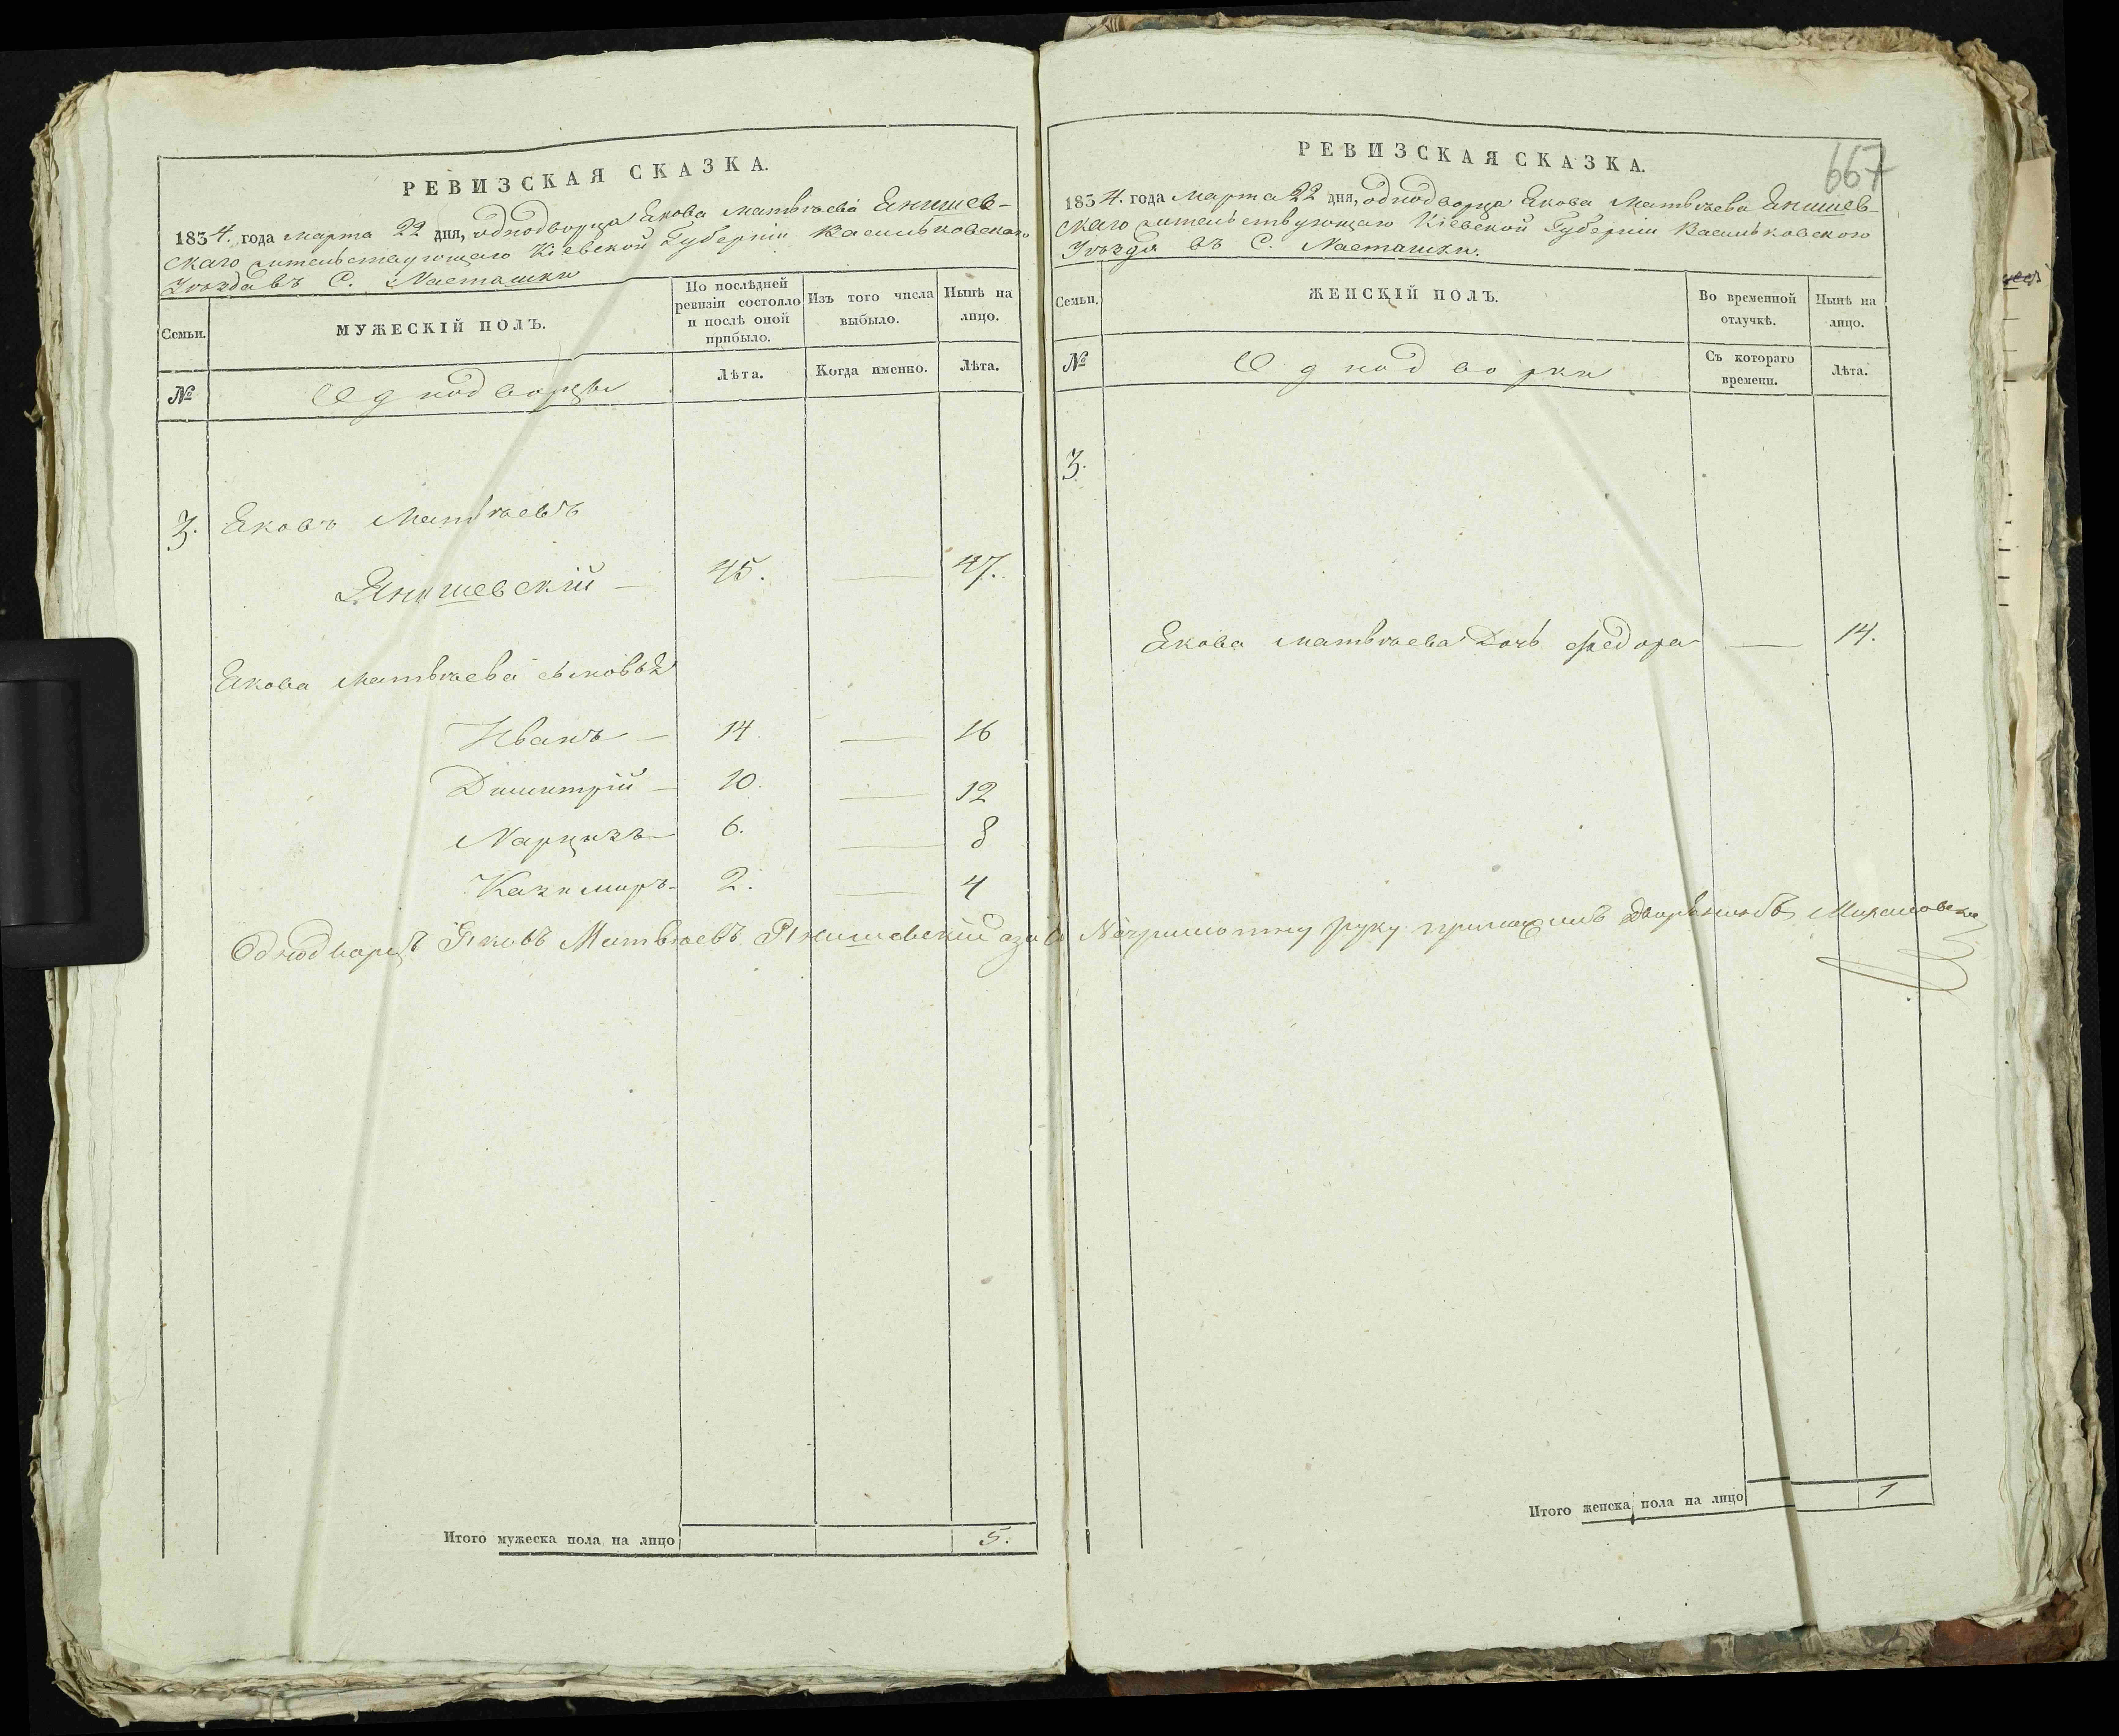 РЕВИЗСКАЯ СКАЗКА.
1834. года марта 22 дня, однодворца Якова Матвѣева Янишев-
скаго жительствующаго Кіевской Губерніи Васильковскаго
Уѣзда въ С. Насташки
Семьи.
МУЖЕСКІЙ ПОЛЪ.
По послѣдней ревизіи состояло и послѣ оной прибыло.
Изъ того числа выбыло.
Нынѣ на лицо.
№
Однодворцы
Лѣта.
Когда именно.
Лѣта.
3. Яковъ Матвѣевъ
Янишевскій — 45. — 47.
Якова Матвѣева сыновья
Иванъ — 14. — 16
Димитрій — 10. — 12
Нарцизъ — 6. — 8
Казимиръ — 2. — 4
Однодворецъ Яковъ Матвѣевъ Янишевскій а за его
Итого мужеска пола на лицо 5.
667
РЕВИЗСКАЯ СКАЗКА.
1834. года марта 22 дня, однодворца Якова Матвѣева Янишев-
скаго жительствующаго Кіевской Губерніи Васильковского
Уѣзда въ С. Насташки.
Семьи.
ЖЕНСКІЙ ПОЛЪ.
Во временной отлучкѣ.
Нынѣ на лицо.
№
Однодворки
Съ котораго времени.
Лѣта.
3.
Якова Матвѣева Дочь Федора — 14.
руку
Итого женска пола на лицо 1